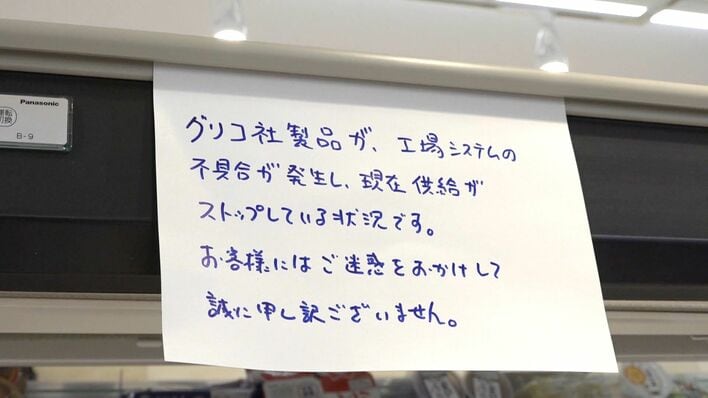 Panasonic
運転
切換
B-9
グリコ社製品が、工場システムの
不具合が発生し、現在供給が
ストップしている状況です。
お客様にはご迷惑をおかけして
誠に申し訳ございません。